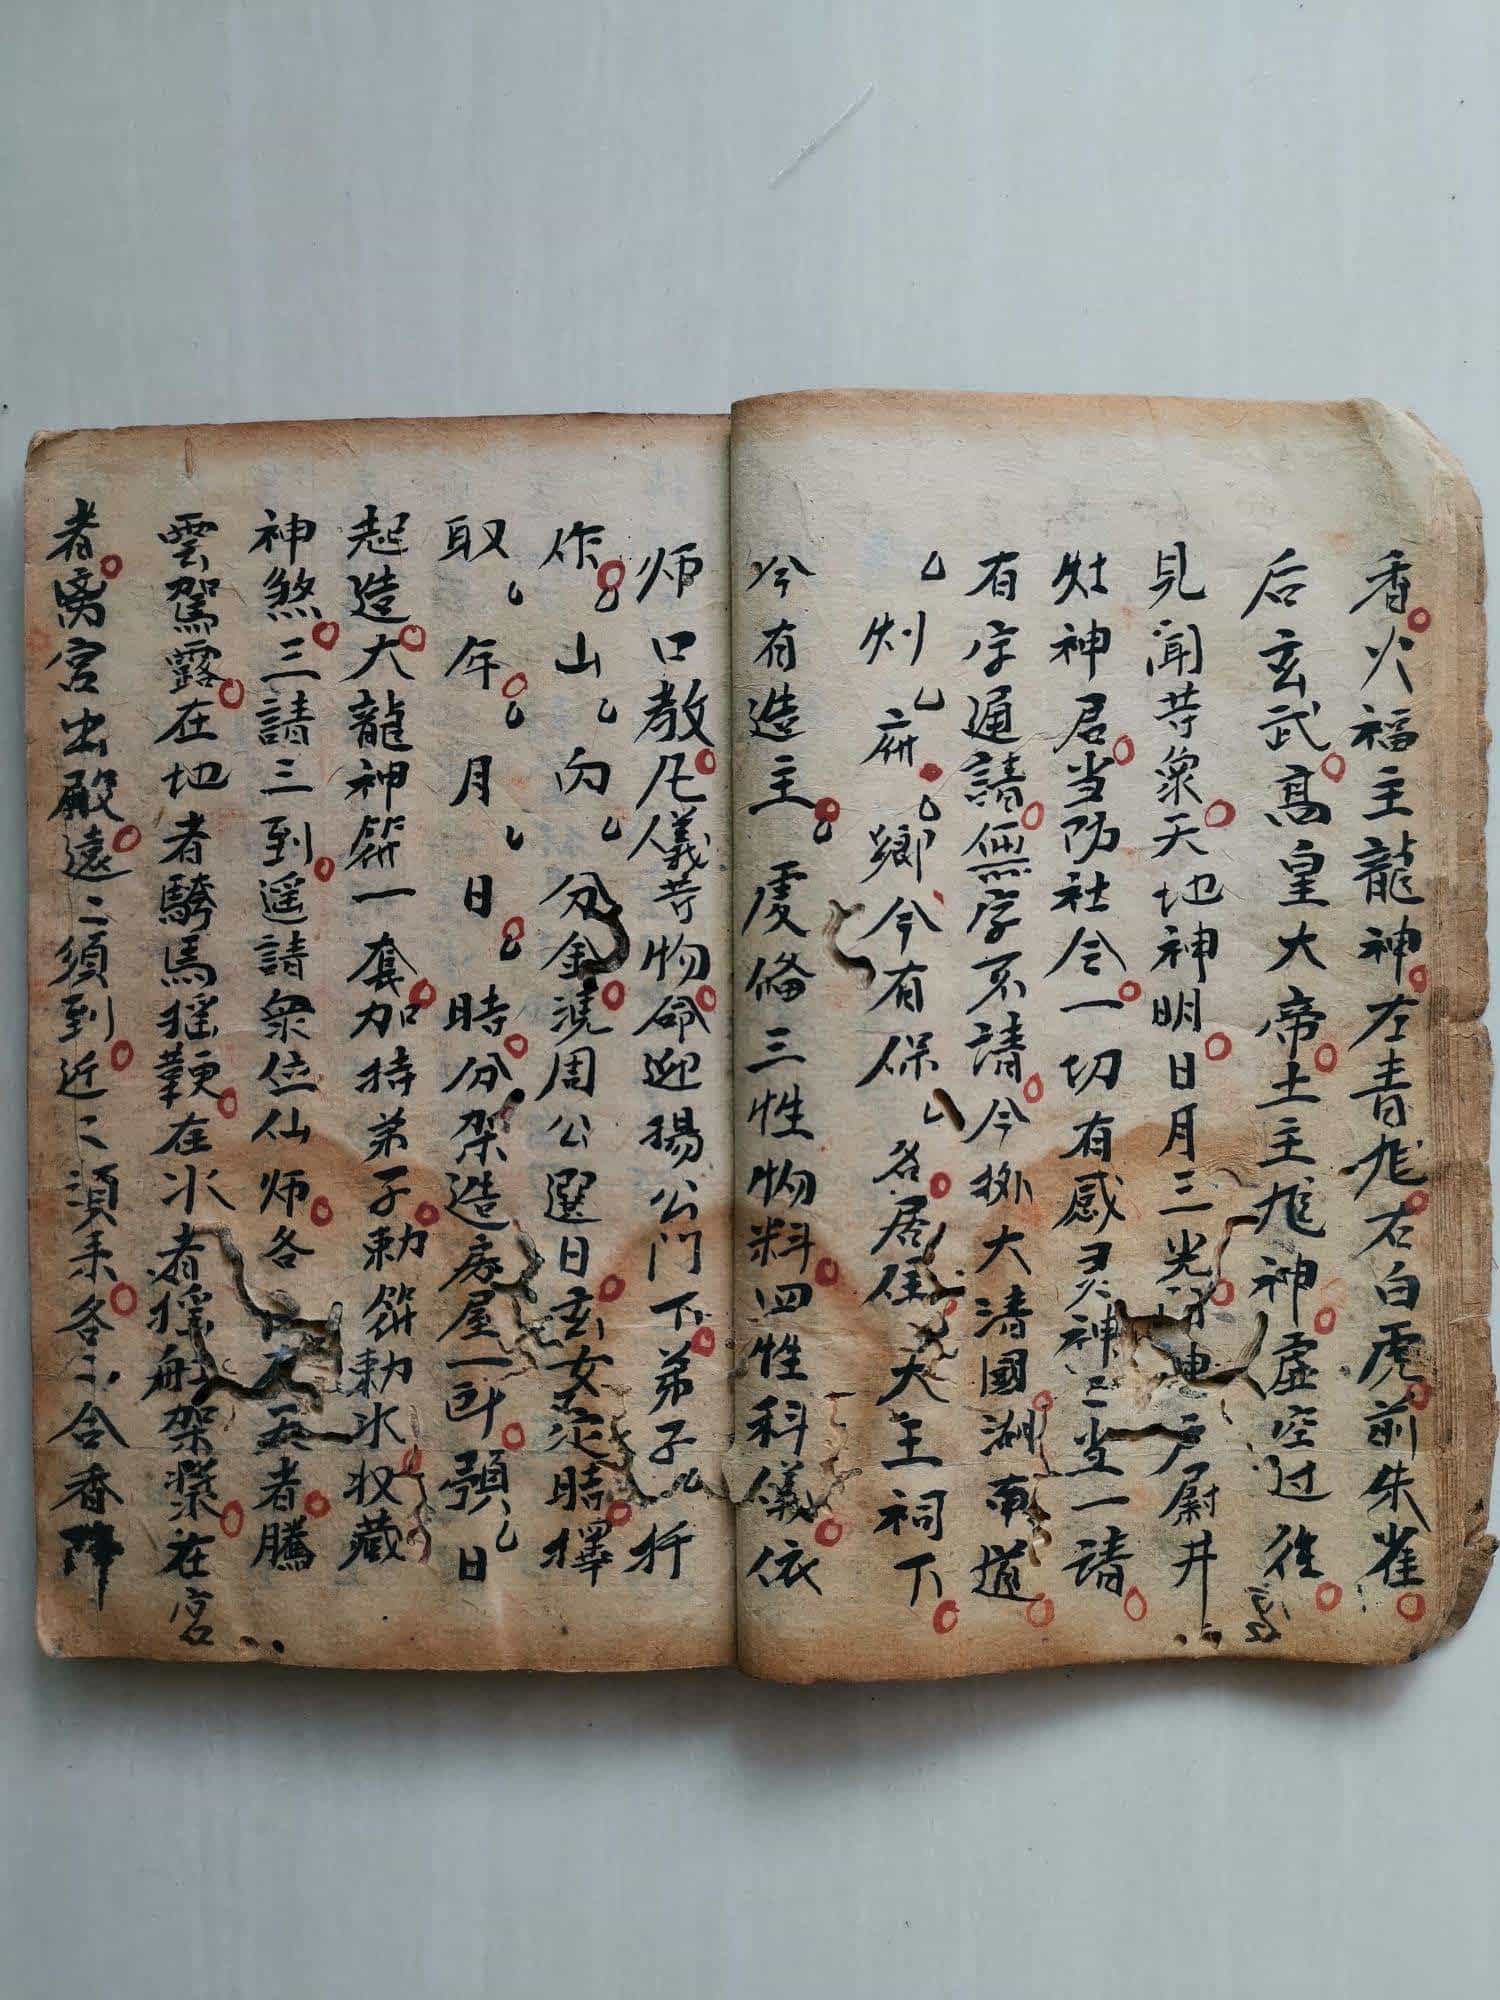 香火福主龍神左青龙右白虎前朱雀
后玄武高皇大帝土主龙神虚空过往
見聞等衆天地神明日月三光 电户尉井
灶神君当防社令一切有感灵神二主一請
有字通請無字不請今挪大清國湖南道
乚州乚府乚鄉今有保乚各居住大主祠下
今有造主乚虔俻三牲物料四牲科儀依
师口教凡儀等物命迎揚公門下弟子乚折
作乚山乚向乚分金澆周公選日玄女定時擇
取乚年乚月乚日乚時分架造房屋一所領乚日
起造大龍神符一套加持弟子勅符勅水收藏
神煞三請三到遥請衆位仙师各 者騰
雲駕露在地者騎馬摇鞭在水者摇船架槳在宮
者离宮出殿遠二須到近二須来各二含香降